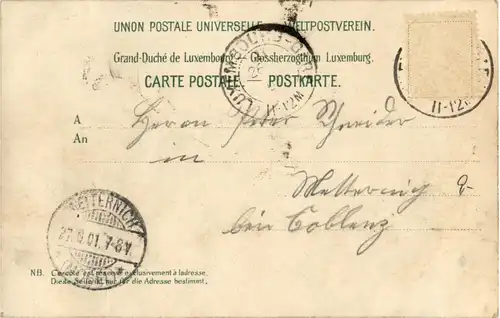 UNION POSTALE UNIVERSELLE WELTPOSTVEREIN.
Grand-Duché de Luxembourg Grossherzogthum Luxemburg.
CARTE POSTALE POSTKARTE.
LUXEMBOURG
11-12M
11-12
A Herrn Peter Schneider
An
in
Metternich
bei Coblenz
METTERNICH
6.01. 7-8V.
N.B. Ce côté est réservé exclusivement à l'adresse.
Diese Seite ist nur für die Adresse bestimmt.